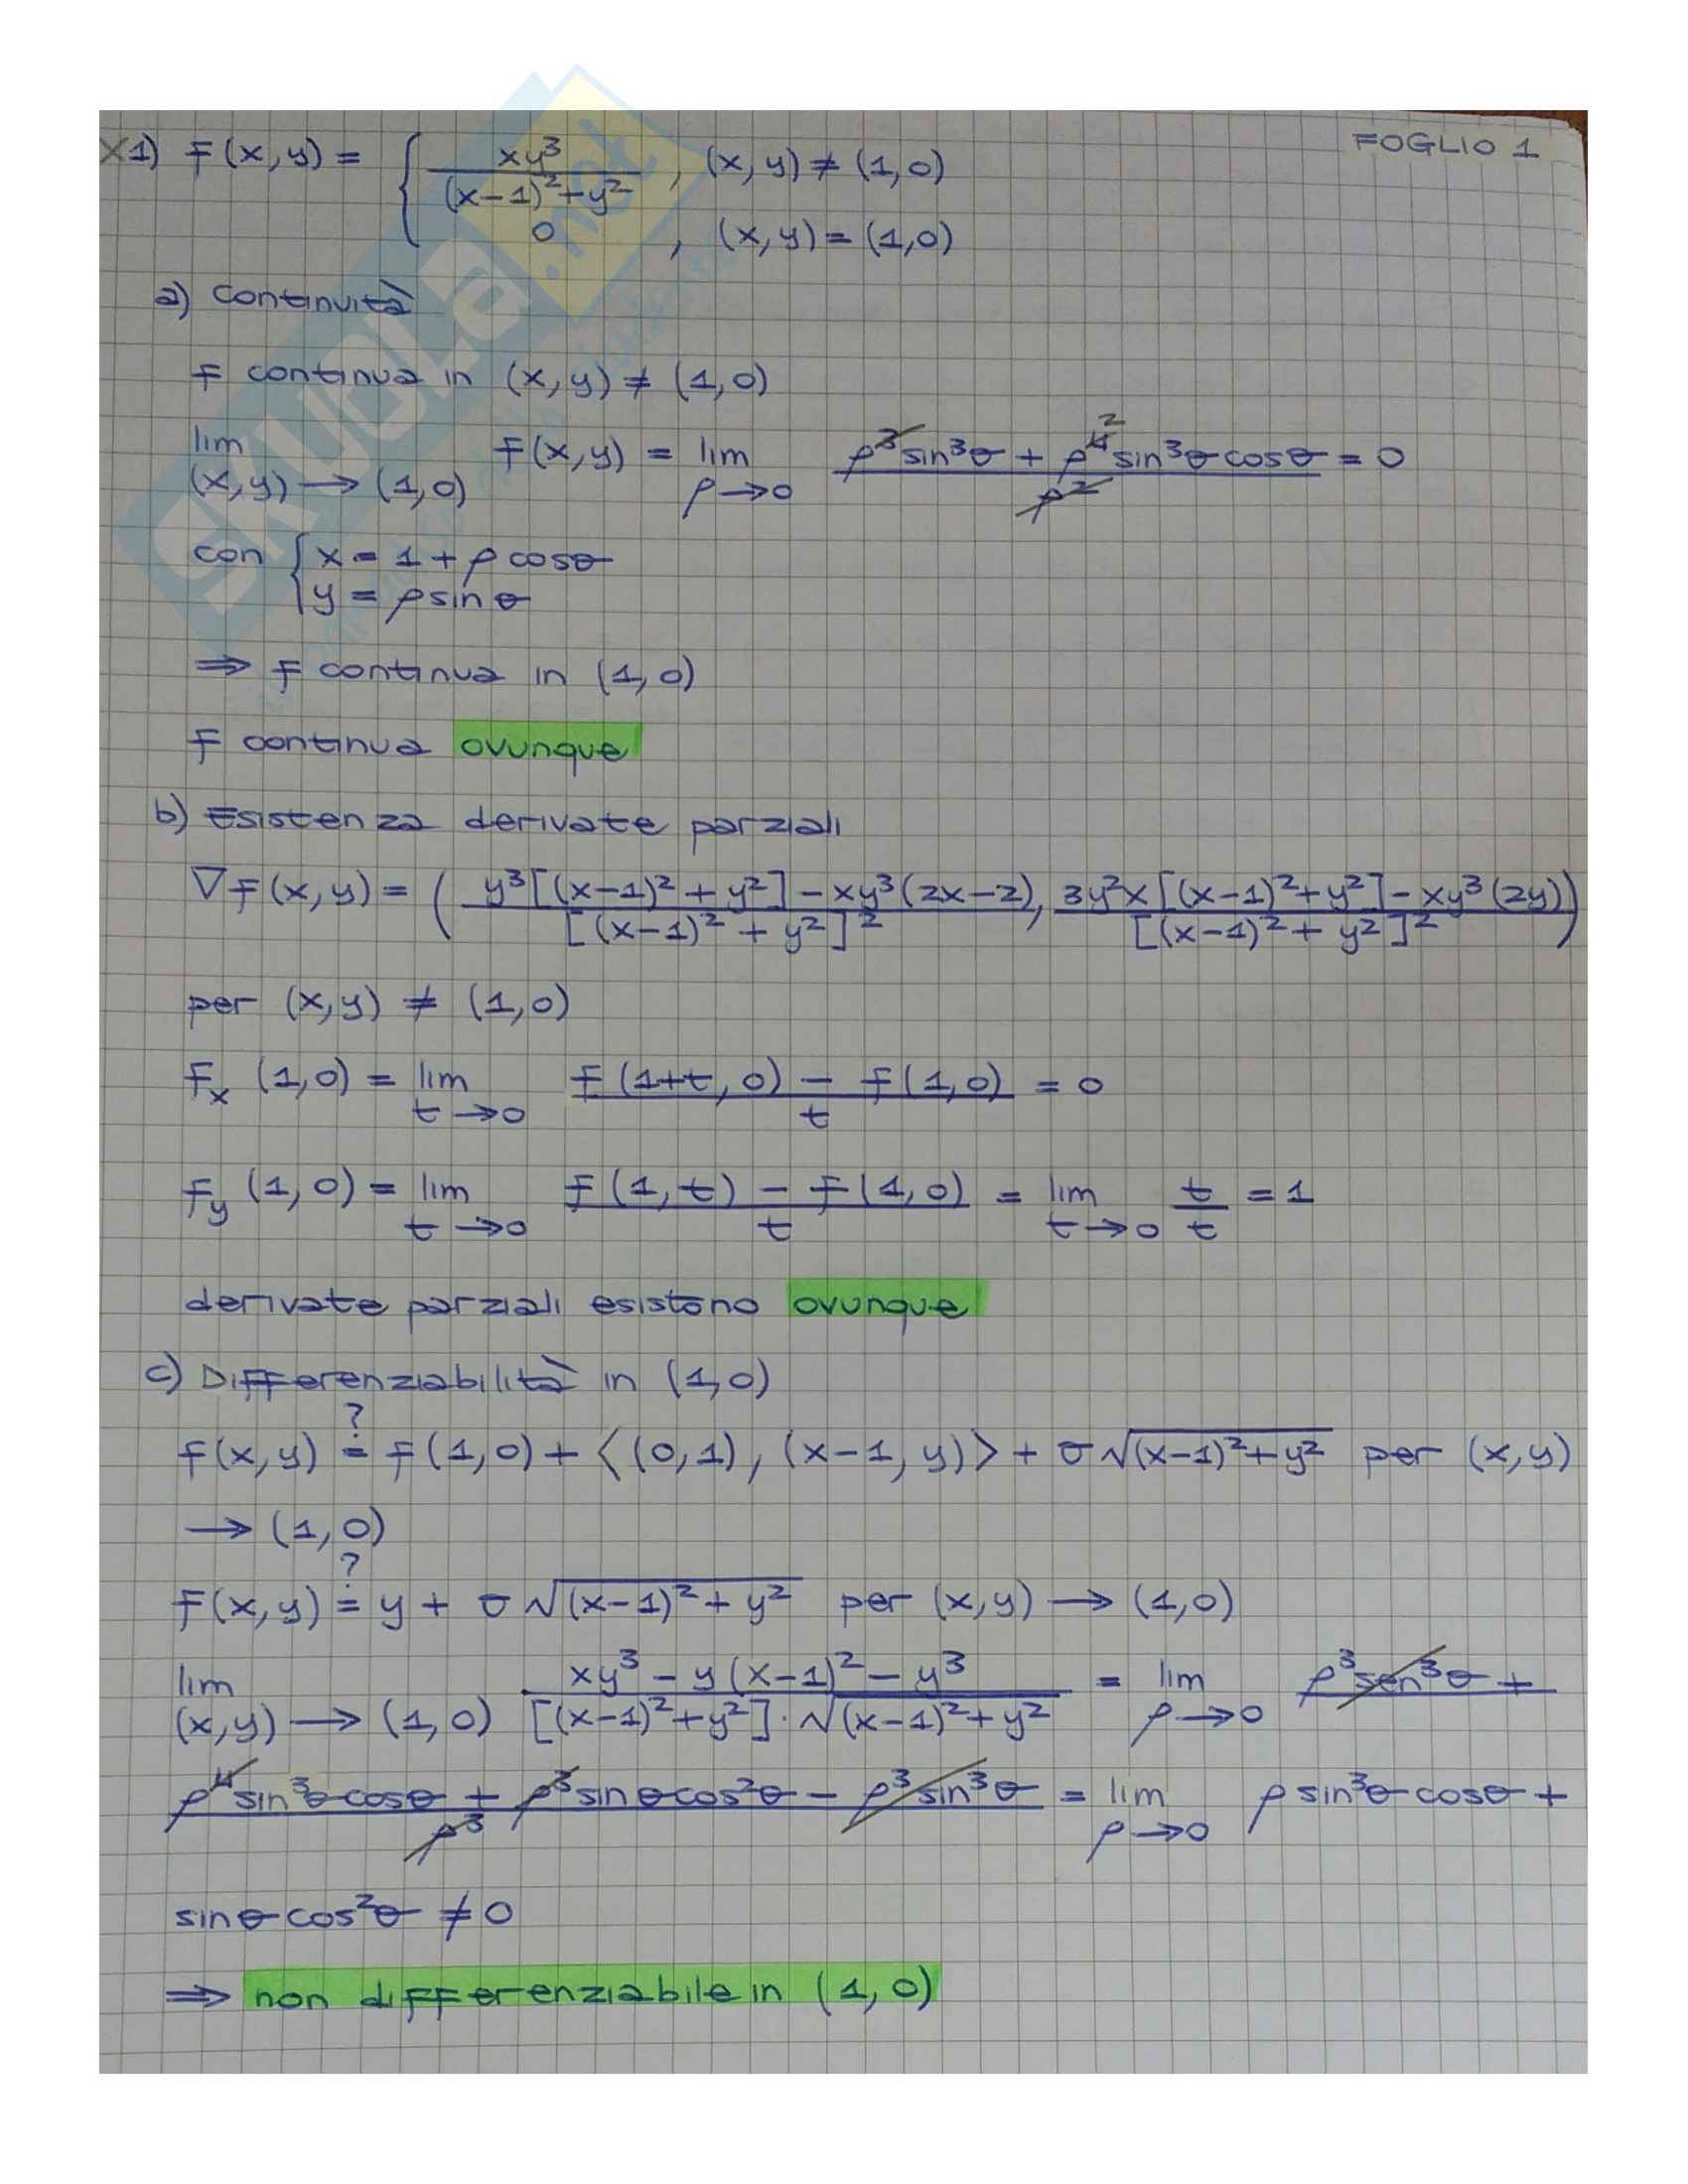 FOGLIO 1
X1) F(x,y) = { xy³ / (x-1)²+y² , (x,y) ≠ (1,0)
0 , (x,y) = (1,0)
a) Continuità
F continua in (x,y) ≠ (1,0)
lim (x,y) → (1,0) F(x,y) = lim ρ→0 ρ³sin³θ + ρ⁴sin³θcosθ / ρ² = 0
2
con { x = 1 + ρcosθ
y = ρsinθ
⇒ F continua in (1,0)
F continua ovunque
b) Esistenza derivate parziali
∇F(x,y) = ( y³[(x-1)² + y²] - xy³(2x-2) / [(x-1)² + y²]² , 3y²x[(x-1)²+y²] - xy³(2y) / [(x-1)² + y²]² )
per (x,y) ≠ (1,0)
Fx (1,0) = lim t→0 F(1+t,0) - F(1,0) / t = 0
Fy (1,0) = lim t→0 F(1,t) - F(1,0) / t = lim t→0 t / t = 1
derivate parziali esistono ovunque
c) Differenziabilità in (1,0)
F(x,y) ?= F(1,0) + ⟨(0,1), (x-1,y)⟩ + σ√(x-1)²+y² per (x,y)
→ (1,0)
F(x,y) ?= y + σ√(x-1)²+y² per (x,y) → (1,0)
lim (x,y) → (1,0) xy³ - y(x-1)² - y³ / [(x-1)²+y²]·√(x-1)²+y² = lim ρ→0 ρ³sen³θ +
ρ⁴sin³θcosθ + ρ³sinθcos²θ - ρ³sin³θ / ρ³ = lim ρ→0 ρsin³θcosθ +
sinθcos²θ ≠ 0
⇒ non differenziabile in (1,0)
SKUOLA.net